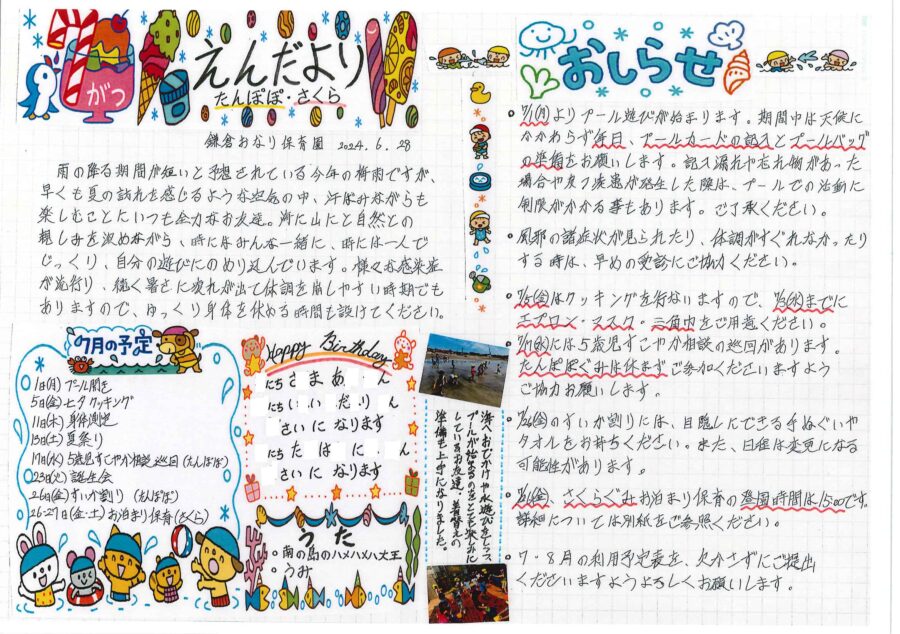 がつ
えんだより
たんぽぽ・さくら
鎌倉おなり保育園 2024.6.28
雨の降る期間が短いと予想されている今年の梅雨ですが、
早くも夏の訪れを感じるような空気の中、汗ばみながらも
楽しむことにいつも全力なお友達。海に山にと自然との
親しみを深めながら、時にはみんな一緒に、時には一人で
じっくり、自分の遊びにのめり込んでいます。様々な感染症
が流行り、続く暑さに疲れが出て体調を崩しやすい時期でも
ありますので、ゆっくり身体を休める時間も設けてください。
7月の予定
1日(月)プール開き
5日(金)七夕クッキング
11日(木)身体測定
13日(土)夏祭り
17日(水)5歳児すこやか相談巡回(たんぽぽ)
23日(火)誕生会
26日(金)すいか割り(たんぽぽ)
26-27日(金・土)お泊まり保育(さくら)
Happy Birthday
にち さ ま あ ん
にち い い だ り ん
さいに なります
にち た は に ん
さいに なります
うた
・南の島のハメハメハ大王
・うみ
海へおでかけや水遊びをしつつ、
プールが始まるのをとても楽しみに
しているお友達。着替えの
準備も上手になりました。
おしらせ
・7/1(月)よりプール遊びが始まります。期間中は天候に
かかわらず毎日、プールカードの記入とプールバッグ
の準備をお願いします。記入漏れや忘れ物があった
場合や皮フ疾患が発生した際は、プールでの活動に
制限がかかる事もあります。ご了承ください。
・風邪の諸症状が見られたり、体調がすぐれなかったり
する時は、早めの受診にご協力ください。
・7/5(金)はクッキングを行ないますので、7/3(水)までに
エプロン・マスク・三角巾をご用意ください。
・7/17(水)には5歳児すこやか相談の巡回があります。
たんぽぽぐみは休まずご参加くださいますよう
ご協力お願いします。
・7/26(金)のすいか割りには、目隠しにできる手ぬぐいや
タオルをお持ちください。また、日程は変更になる
可能性があります。
・7/26(金)、さくらぐみお泊まり保育の登園時間は15:00です。
詳細については別紙をご参照ください。
・7・8月の利用予定表を、欠かさずにご提出
くださいますようよろしくお願いします。